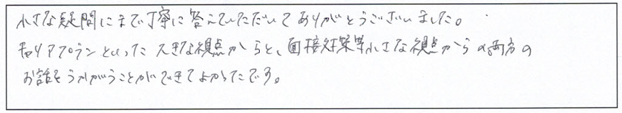 小さな疑問にまで丁寧に答えていただいてありがとうございました。
キャリアプランといった大きな視点からと、面接対策等小さな視点からの両方の
お話をうかがうことができてよかったです。